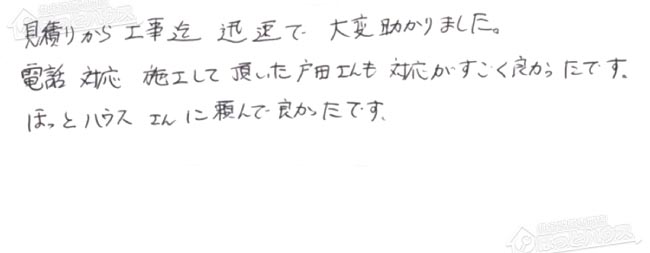 見積りから 工事迄 迅速で 大変助かりました。
電話 対応 施工して 頂いた 戸田さんも 対応がすごく良かったです。
ほっとハウス さんに頼んで良かったです。
ほっとハウス